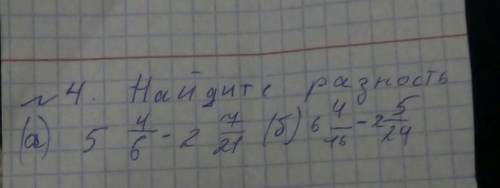 №4. Найдите разность
(а) 5 4/6 - 2 7/21 (б) 6 4/16 - 2 5/24